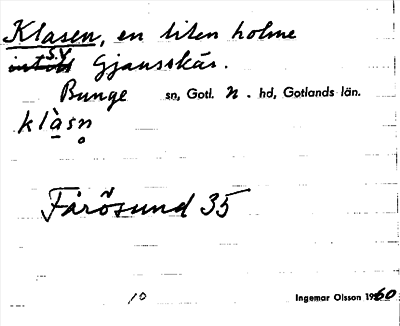 Klasen, en liten holme
SV Gjausskär.
Bunge sn, Gotl. N. hd, Gotlands län.
klàsn̥
Fårösund 35
10 Ingemar Olsson 1960